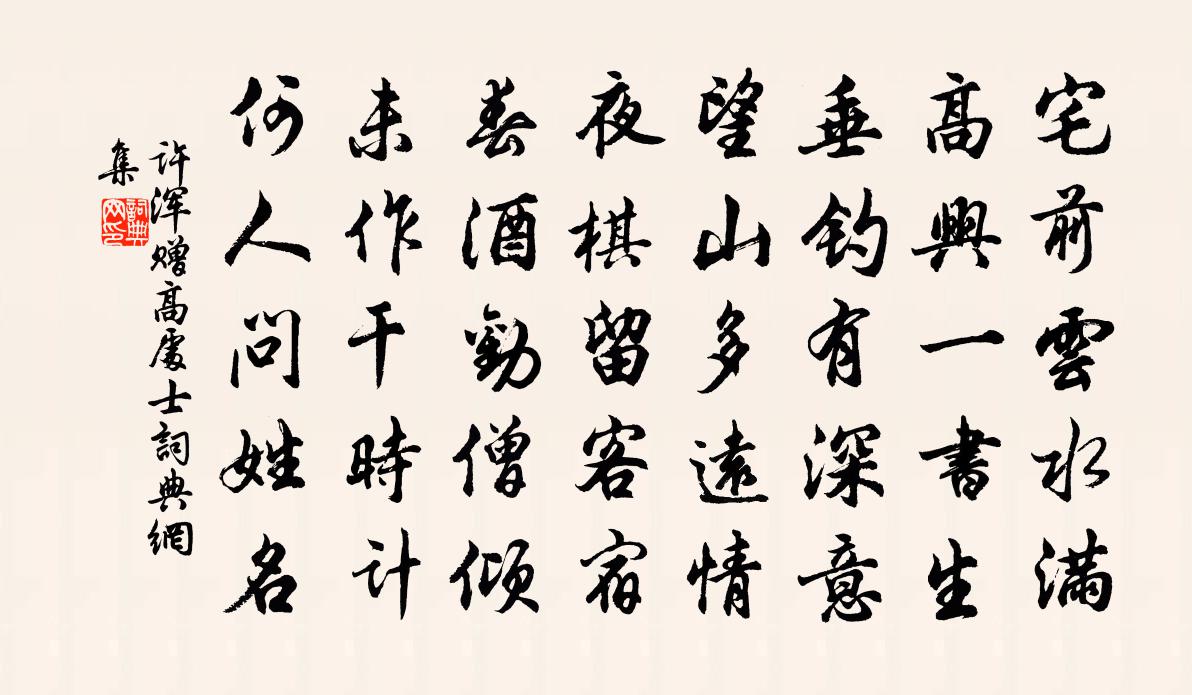 宅前雲水滿
高興一書生
垂釣有深意
望山多遠情
夜棋留客宿
春酒勸僧傾
未作干時計
何人問姓名
許渾贈高處士詞典網
集
詞典
网印